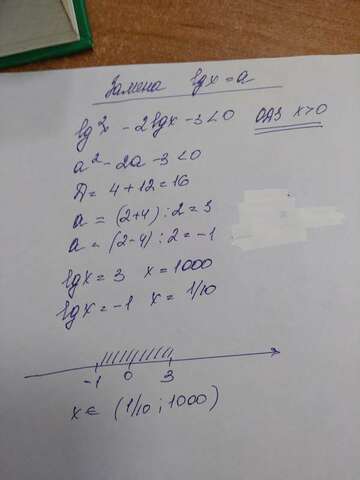 Замена lgx = a
lg²x - 2lgx - 3 < 0 ОДЗ x>0
a² - 2a - 3 < 0
Д = 4 + 12 = 16
a = (2+4) : 2 = 3
a = (2-4) : 2 = -1
lgx = 3 x = 1000
lgx = -1 x = 1/10
-1 0 3
x ∈ (1/10 ; 1000)